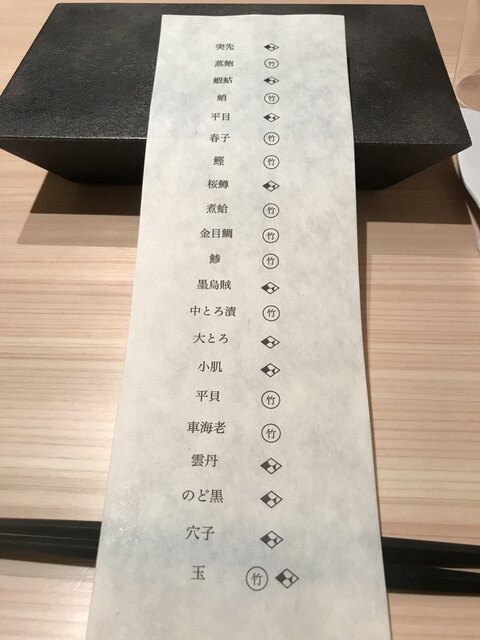 突先
蒸鮑 竹
蝦鮎
蛸 竹
平目
春子 竹
鰹 竹
桜鱒
煮蛤 竹
金目鯛 竹
鯵 竹
墨烏賊
中とろ漬 竹
大とろ
小肌
平貝 竹
車海老 竹
雲丹
のど黒
穴子
玉 竹